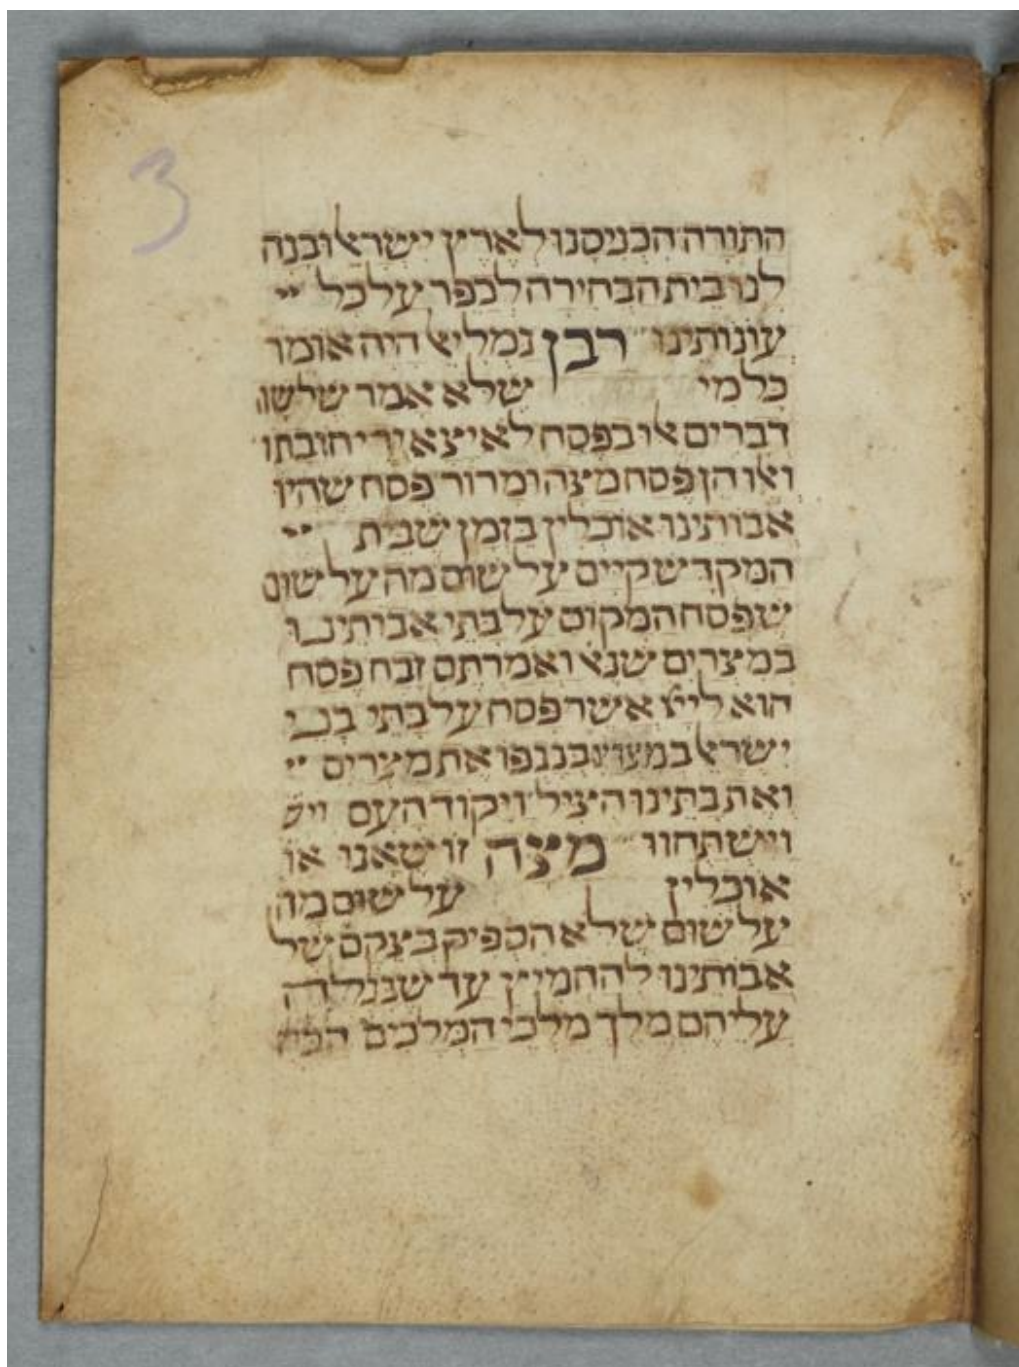 3
התורה הכניסנו לארץ ישראל ובנה
לנו בית הבחירה לכפר על כל
עונותינו רבן גמליאל היה אומר
כל מי שלא אמר שלשה
דברים אלו בפסח לא יצא ידי חובתו
ואלו הן פסח מצה ומרור פסח שהיו
אבותינו אוכלין בזמן שבית
המקדש קיים על שום מה על שום
שפסח המקום על בתי אבותינו
במצרים שנא ואמרתם זבח פסח
הוא לייי אשר פסח על בתי בני
ישראל במצרים בנגפו את מצרים
ואת בתינו הציל ויקוד העם ויש
וישתחוו מצה זו שאנו או
אוכלין על שום מה
על שום שלא הספיק בצקם של
אבותינו להחמיץ עד שנגלה
עליהם מלך מלכי המלכים